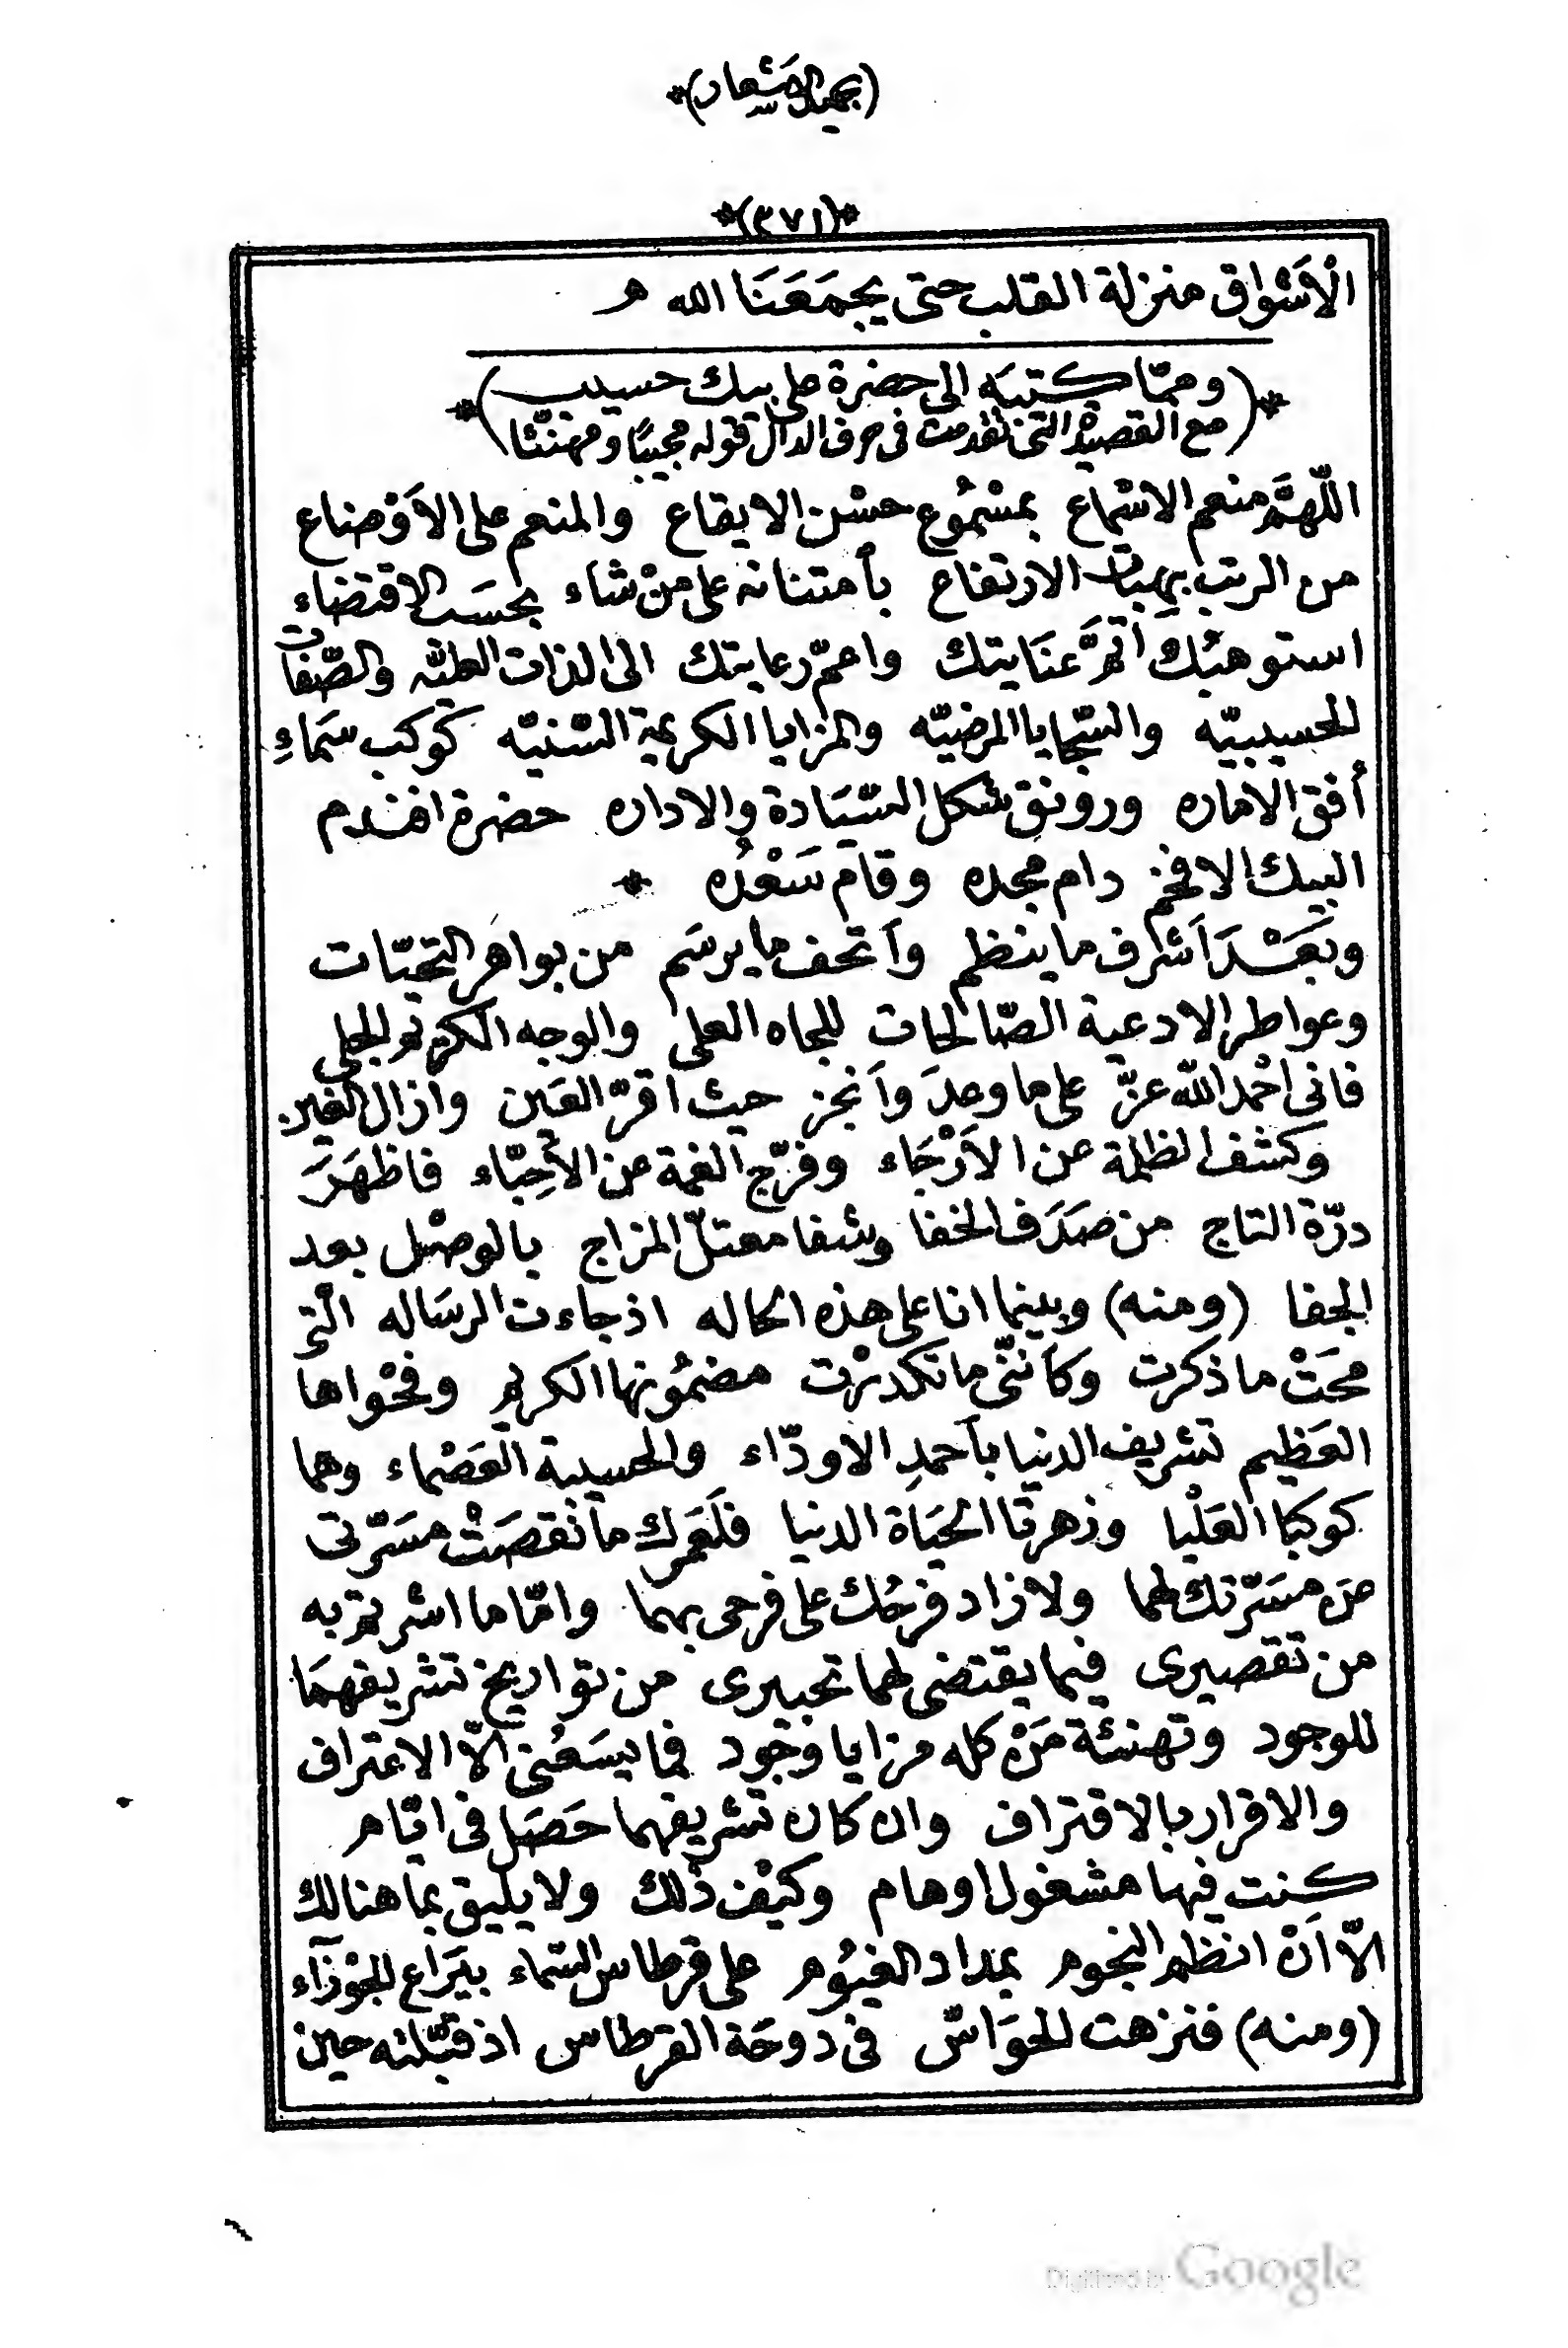 *(٣٧١)*
الْأَشْواق منزلة القلب حتى يجمَعَنَا الله م
*(ومما كتبه الى حضرة على بيك حسيب)*
(مع القصيدة التى تقدمت فى حرف الدال قوله مجيبًا ومهنئا)
اللّهمَّ منعم الاسْماع بمسْمُوع حسْن الايقاع والمنعم على الأوْضاع
من الرتب بهبات الارتفاع بأمتنانه على منْ شاء بحسَب الاقتضاءِ
استوهبُك اتمَّ عنَايتك واعمّ رعايتك الى الذات العليّه والصّفات
الحسيبيّه والسّجايا المرضيّه والمزايا الكريمة السّنيّه كوكب سَماءِ
أفق الاماره ورونق شكل السّيَادة والاداره حضرة افندم
البيك الافخم دام مجده وقام سَعْدُه *
وبَعْدَ اَشرف ما ينظم واَتحف ما يرسَم من بواهر التحيّات
وعواطر الادعية الصّالحات للجاه العلى والوجه الكريم الجلى
فانى احْمد اللّه عزّ على ما وعدَ واَنجز حيث اقرّ العَين وازال الغين
وكشف الظلمة عن الأَرْجَاء وفرّج الغمة عن الأحِبّاء فاظهَرَ
درّة التاج من صَدَف الخفا وشفا معتلّ المزاج بالوصْل بعد
الجفا (ومنه) وبينما انا على هذه الحاله اذ جاءت الرسَاله الْتى
محَتْ ما ذكرت وكاَننّى ما تكدرْت مضمُونها الكريم وفحْواها
العَظيم تشريف الدنيا بأحمدِ الاودّاء والحسيبة العَصْماء وهما
كوكبا العَلْيا وزهرتا الحيَاة الدنيا فلَعَمرك ما نقصَتْ مسَرّتى
عن مسَرّتك لهما ولا زاد فرحُك على فرحى بهما وامّا ما اشرتم به
من تقصيرى فيما يقتضى لهما تحبيرى من تواريخ تشريفهمَا
للوجود وتهنئة مَنْ كله مزايا وجُود فما يسَعُنى الّا الاعتراف
والاقرار بالاقتراف وان كان تشريفهما حَصَل فى ايّام
كنت فيها مشغول اوهام وكيْف ذلك ولا يليق بما هنالك
الّا اَنْ انظم النجوم بمداد الغيُوم على قرطاس السّماء بيَرَاع الجوْزآء
(ومنه) فنزهت الحوَاسّ فى دوحَة القرطاس اذ قبّلته حين
Digitized by Google